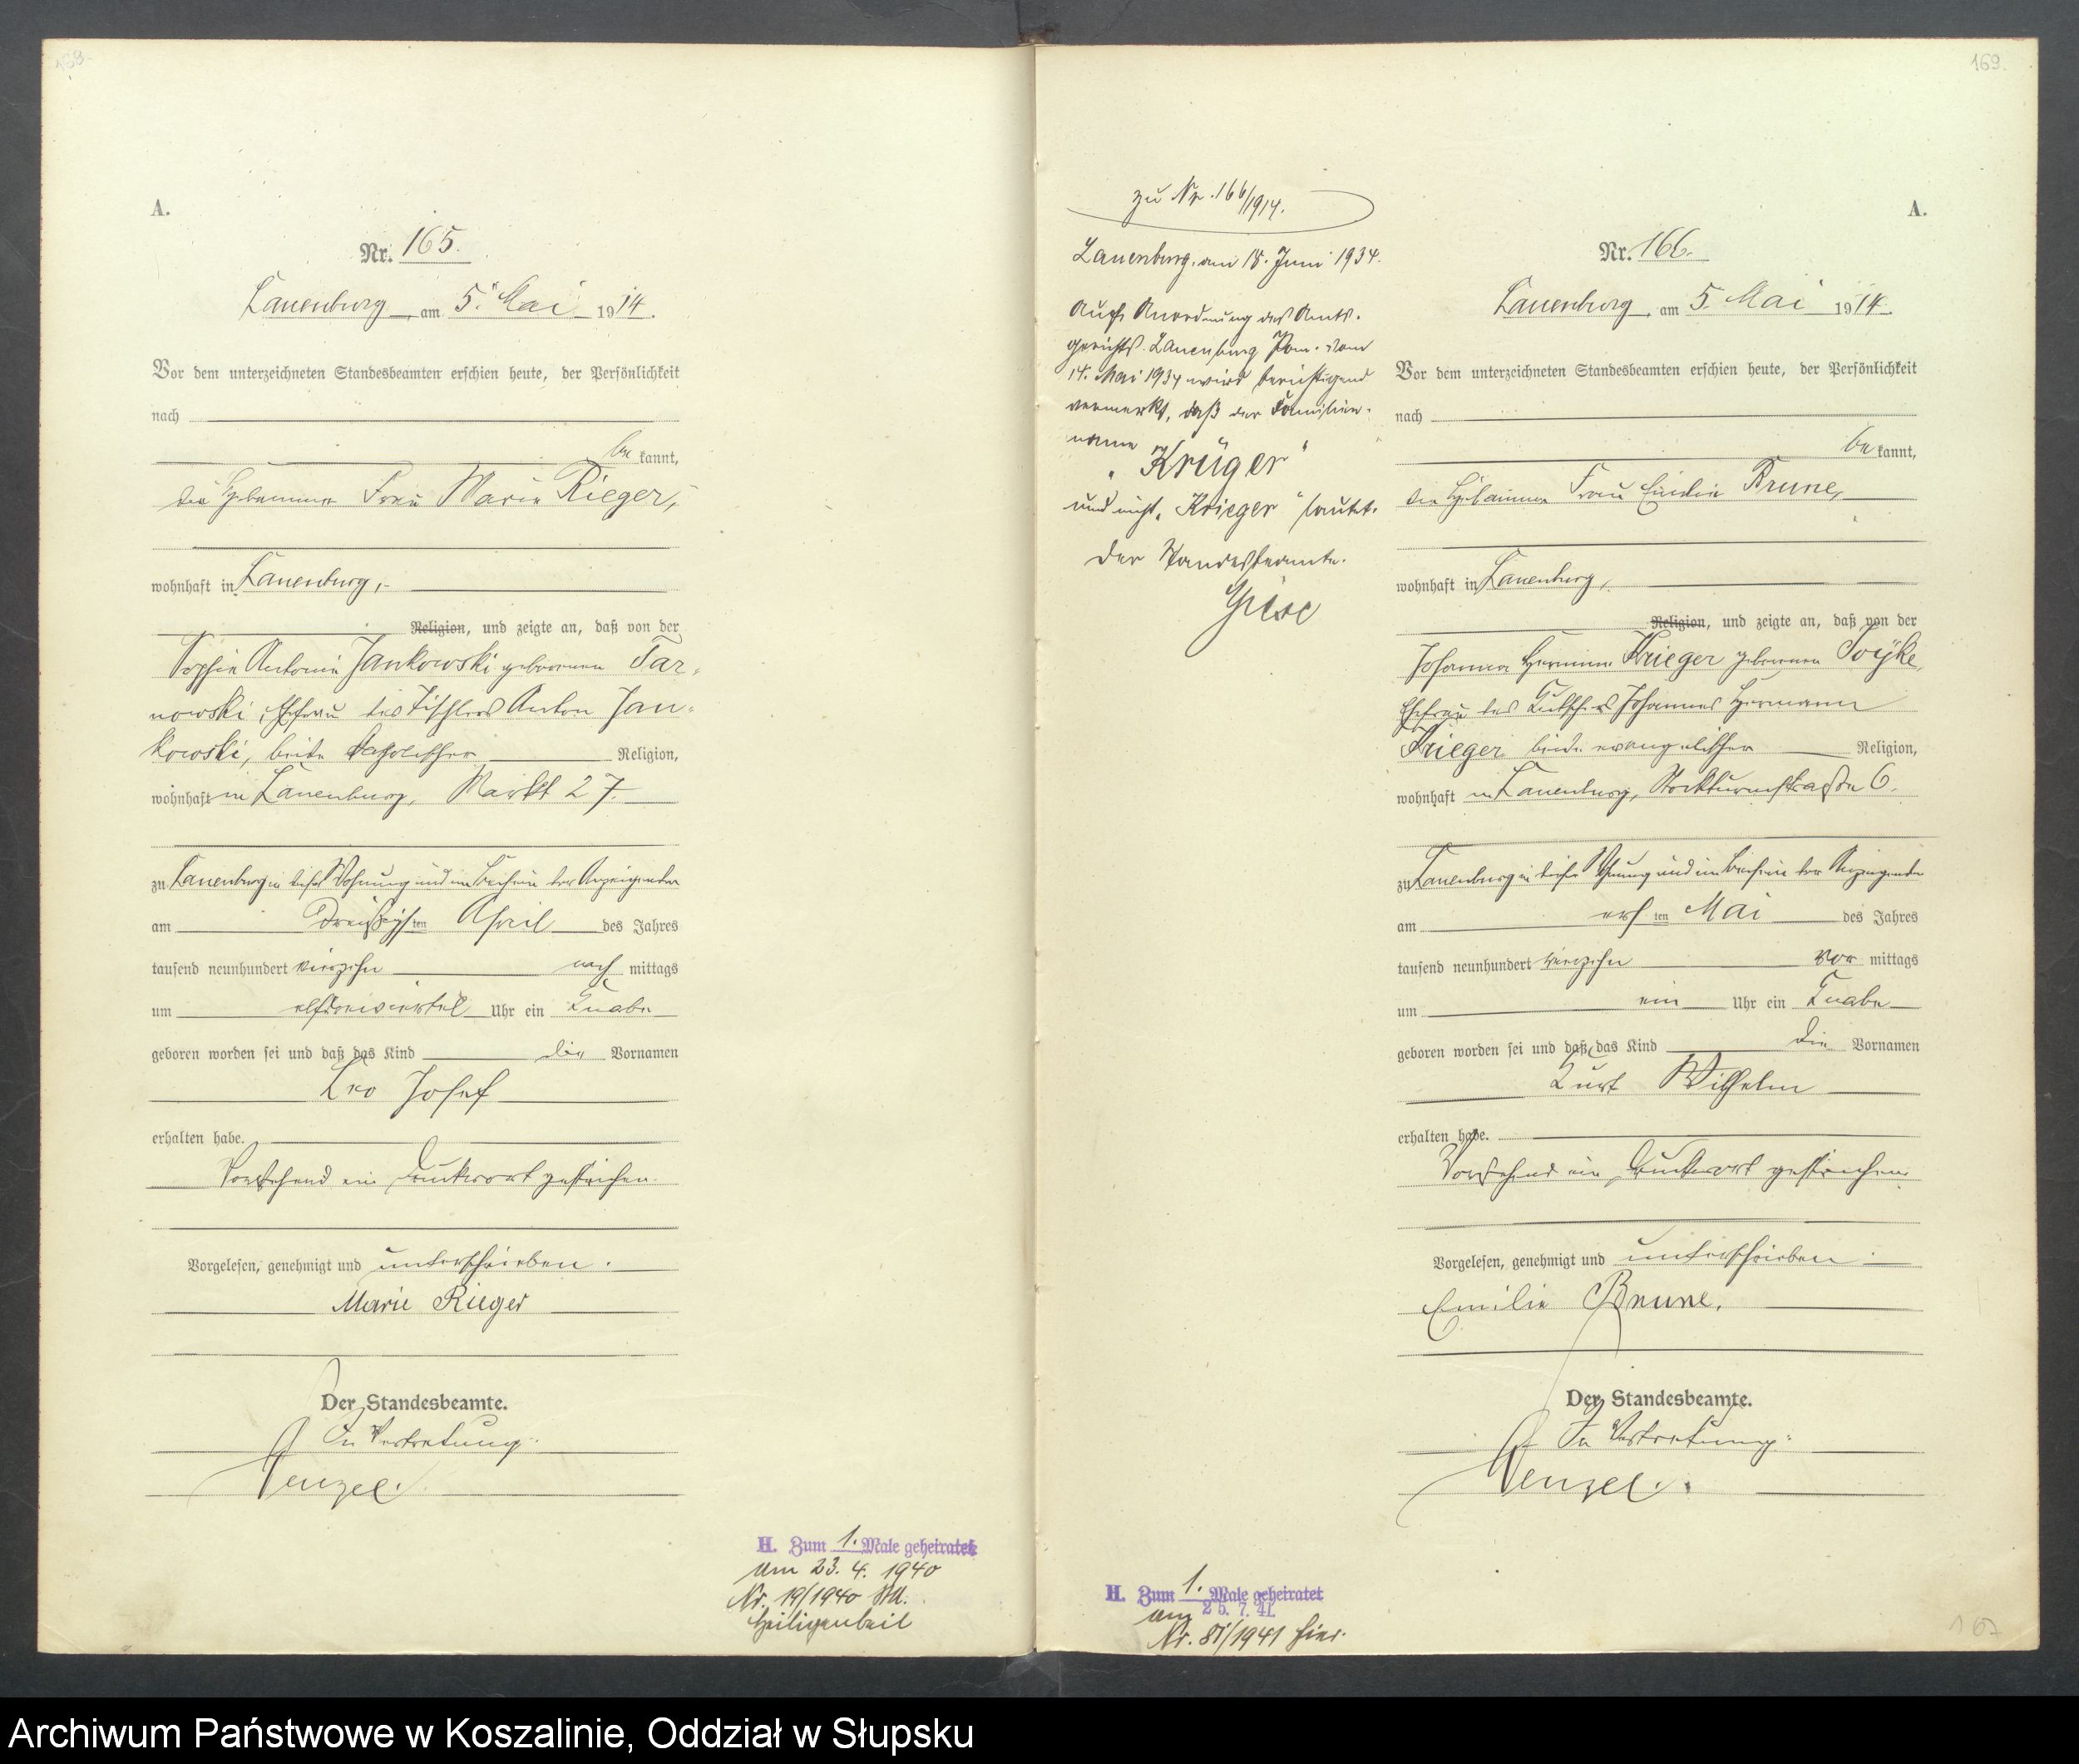 168.
A.
Nr. 165.
Lauenburg, am 5. Mai 1914.
Vor dem unterzeichneten Standesbeamten erschien heute, der Persönlichkeit
nach
bekannt,
die Hebamme Frau Marie Rieger,
wohnhaft in Lauenburg,
Religion, und zeigte an, daß von der
Sophie Antonie Jankowski geborenen Tar-
nowski, Ehefrau des Tischlers Anton Jan-
kowski, beide katholischer Religion,
wohnhaft in Lauenburg, Markt 27.
zu Lauenburg in dieser Wohnung und im Beisein der Anzeigenden
am dreißigsten April des Jahres
tausend neunhundert vierzehn nachmittags
um elfdreiviertel Uhr ein Knabe
geboren worden sei und daß das Kind die Vornamen
Leo Josef
erhalten habe.
Vorstehend ein Druckwort gestrichen.
Vorgelesen, genehmigt und unterschrieben.
Marie Rieger
Der Standesbeamte.
In Vertretung.
Wenzel.
H. Zum 1. Male geheiratet
am 23. 4. 1940
Nr. 19/1940 StA.
Heiligenbeil
169.
zu Nr. 166/1914.
Lauenburg, am 18. Juni 1934.
Auf Anordnung des Amts-
gerichts Lauenburg Pom. vom
14. Mai 1934 wird berichtigend
vermerkt, daß der Familien-
name
"Krüger"
und nicht "Krieger" lautet.
Der Standesbeamte.
A.
Nr. 166.
Lauenburg, am 5. Mai 1914.
Vor dem unterzeichneten Standesbeamten erschien heute, der Persönlichkeit
nach
bekannt,
die Hebamme Frau Emilie Brune,
wohnhaft in Lauenburg,
Religion, und zeigte an, daß von der
Johanna Hermine Krieger geborenen Soyke,
Ehefrau des Kutschers Johannes Hermann
Krieger beide evangelischer Religion,
wohnhaft in Lauenburg, Stockturmstraße 6.
zu Lauenburg in dieser Wohnung und im Beisein der Anzeigenden
am ersten Mai des Jahres
tausend neunhundert vierzehn vormittags
um ein Uhr ein Knabe
geboren worden sei und daß das Kind die Vornamen
Kurt Wilhelm
erhalten habe.
Vorstehend ein Druckwort gestrichen
Vorgelesen, genehmigt und unterschrieben.
Emilie Brune.
Der Standesbeamte.
In Vertretung:
Wenzel.
H. Zum 1. Male geheiratet
am 25. 7. 41
Nr. 81/1941 hier.
167
Archiwum Państwowe w Koszalinie, Oddział w Słupsku